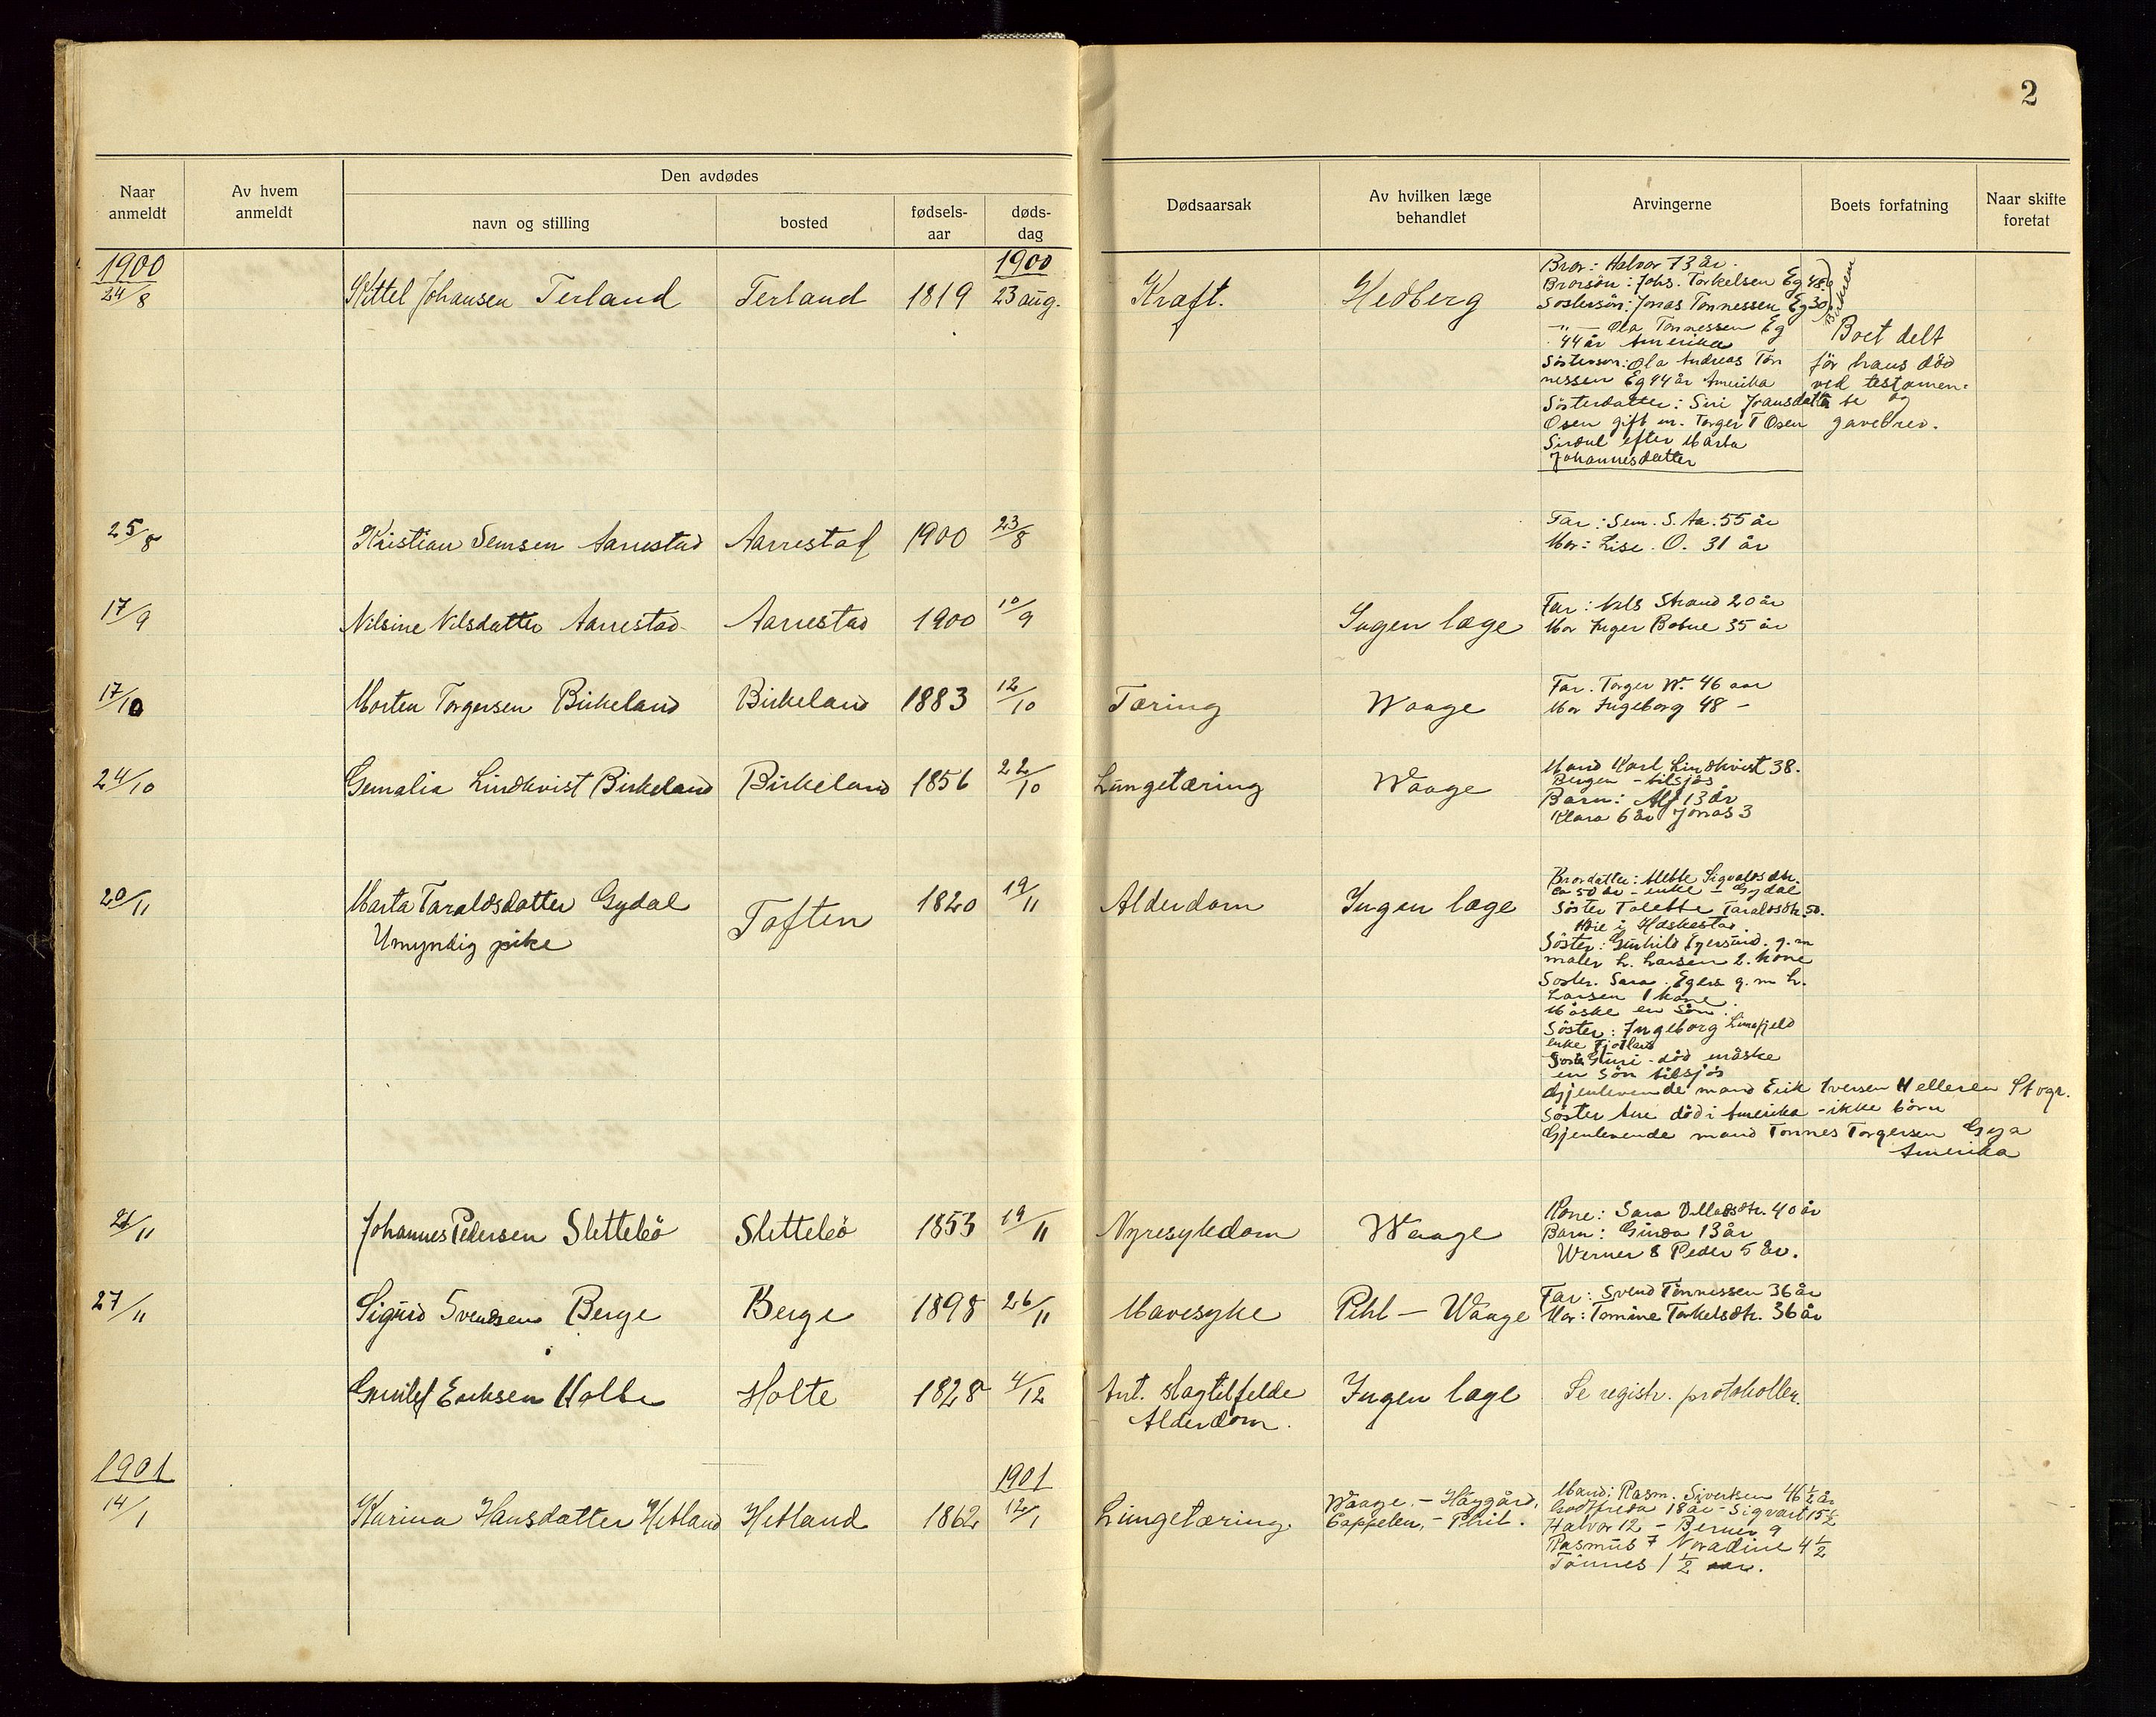 2
Naar anmeldt
Av hvem anmeldt
Den avdødes
navn og stilling
bosted
fødsels-aar
døds-dag
Dødsaarsak
Av hvilken læge behandlet
Arvingerne
Boets forfatning
Naar skifte foretat
1900 1900
24/8 Kittel Johansen Terland Terland 1819 23 aug. Kraft. Hedberg
Bror: Halvor 73 år.
Brorsön: Johs. Torkelsen Eg 48
Sostersön: Jonas Tonnessen Eg 30
-"- Ola Tonnessen Eg
44 år Amerika
Sösterson: Ola Andreas Tön
nessen Eg 44 år Amerika
Sösterdatter: Siri Jonasdatter
Osen gift m. Torger T Osen
Sirdal efter Marta
Johannesdatter
Boet delt
för hans död
ved testamen-
te og
gavebrev.
25/8 Kristian Semsen Aarrestad Aarrestad 1900 23/8
Far: Sem. S. Aa. 55 år
Mor: Lise. O. 31 år
17/9 Nilsine Nilsdatter Aarrestad Aarrestad 1900 10/9 Ingen læge
Far: Nils Strand 20 år
Mor Inger Bobne 35 år
17/10 Morten Torgersen Birkeland Birkeland 1883 12/10 Tæring Waage
Far. Torger W. 46 aar
Mor Ingeborg 48 -
24/10 Gemalia Lindkvist Birkeland Birkeland 1856 22/10 Lungetæring Waage
Mand Karl Lindkvist 38.
Bergen - tilsjös
Barn: Alf 13 år
Klara 6 år Jonas 3
20/11 Marta Taraldsdatter Gydal Toften 1820 19/11 Alderdom Ingen læge
Umyndig pike
Brordatter: Mette Sigvaldsdtr.
ca 50 år - enke - Gydal
Söster Tolette Taraldsdtr. 50.
i Heskestad
Söster: Gunhild Egersund. g. m
maler L. Larsen 2. kone
Soster. Sara. Egers g. m L.
Larsen 1 kone.
Måske en Sön.
Söster: Ingeborg
enke Fjotland
Soster Guri - död måske
en Sön tilsjös
Gjenlevende mand Erik Iversen Helleren
Söster Ane död i Amerika - ikke börn
Gjenlevende mand Tonnes Torgersen Gya
Amerika
21/11 Johannes Pedersen Slettebö Slettebö 1853 19/11 Nyresykdom Waage
Kone: Sara Olladsdtr. 40 år
Barn: Ginda 13 år
Werner 8 Peder 5 år.
27/11 Sigurd Svendsen Berge Berge 1898 26/11 Mavesyke Pihl - Waage
Far: Svend Tönnessen 36 år
Mor: Tomine Torkelsdtr. 36 år
Gunlef Eriksen Holte Holte 1828 4/12 Ant. slagtilfelde Ingen læge Se registr. protokollen.
Alderdom.
1901 1901
14/1 Karina Hansdatter Hetland Hetland 1862 12/1 Lungetæring.
Waage. - Haygård.
Cappelen, - Phil.
Mand: Rasm. Sivertsen 46 ½ år
Godtfreda 18 år - Sigvart 15 ½
Halvor 12 - Berner 9
Rasmus 7 Noradine 4 ½
Tönnes 1 ½ aar.